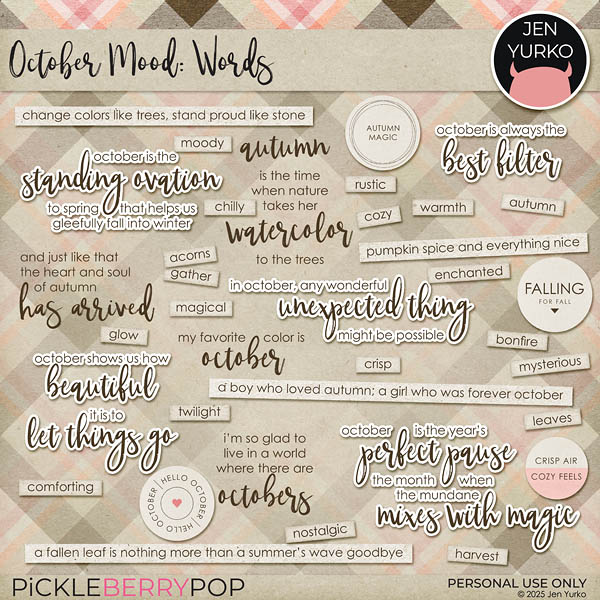 October Mood: Words
JEN
YURKO
change colors like trees, stand proud like stone
moody
AUTUMN
MAGIC
october is always the
best filter
october is the
standing ovation
to spring that helps us
gleefully fall into winter
autumn
is the time
when nature
takes her
watercolor
to the trees
rustic
chilly
cozy
warmth
autumn
pumpkin spice and everything nice
and just like that
the heart and soul
of autumn
has arrived
acorns
gather
magical
enchanted
in october, any wonderful
unexpected thing
might be possible
FALLING
FOR FALL
glow
my favorite color is
october
crisp
bonfire
mysterious
october shows us how
beautiful
it is to
let things go
a boy who loved autumn; a girl who was forever october
twilight
leaves
i'm so glad to
live in a world
where there are
octobers
october is the year's
perfect pause
the month when
the mundane
mixes with magic
CRISP AIR
COZY FEELS
comforting
HELLO OCTOBER | HELLO OCTOBER | HELLO OCTOBER
nostalgic
a fallen leaf is nothing more than a summer's wave goodbye
harvest
PiCKLEBERRYPOP
PERSONAL USE ONLY
© 2025 Jen Yurko